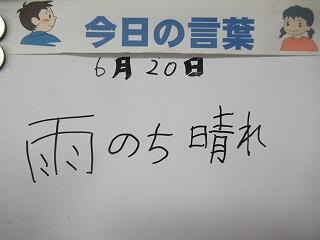 今日の言葉
6月20日
雨のち晴れ